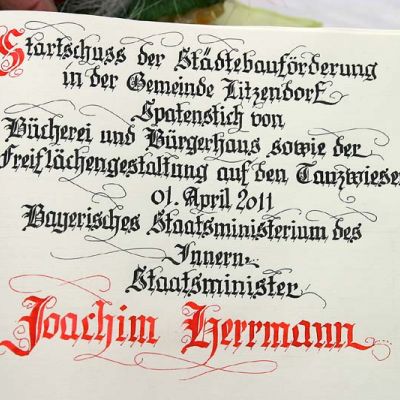 Startschuss der Städtebauförderung
in der Gemeinde Litzendorf
Spatenstich von
Bücherei und Bürgerhaus sowie der
Freiflächengestaltung auf den Tanzwiesen
01. April 2011
Bayerisches Staatsministerium des
Innern
Staatsminister
Joachim Herrmann